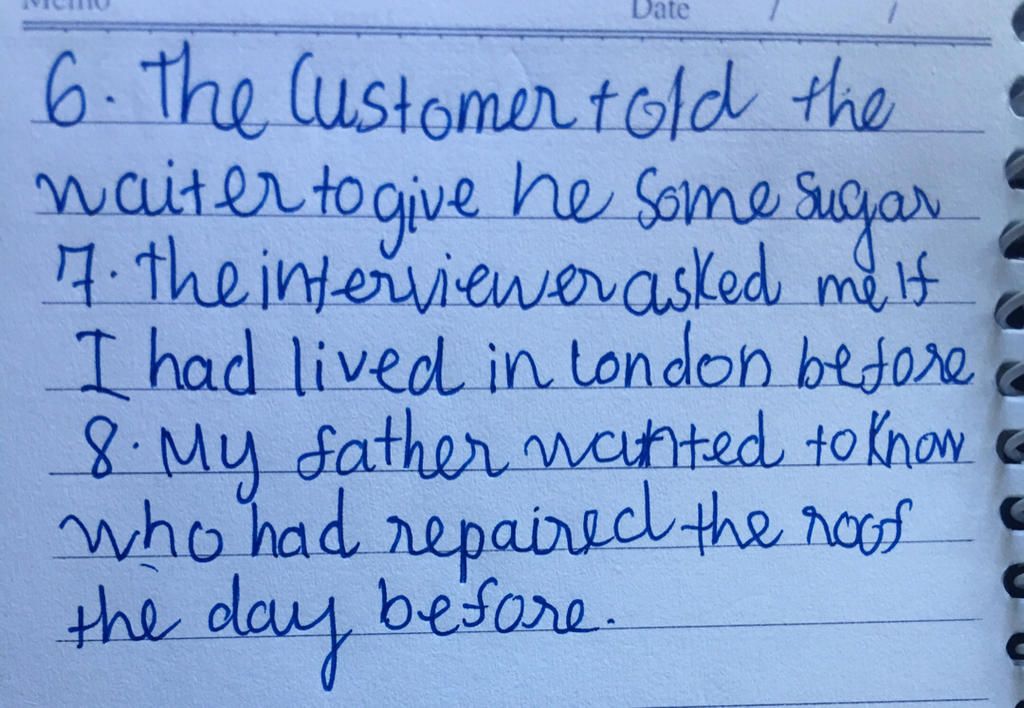 Memo Date / /
6. The Customer told the
waiter to give he some sugar
7. The interviewer asked me If
I had lived in London before
8. My father wanted to know
who had repaired the roof
the day before.